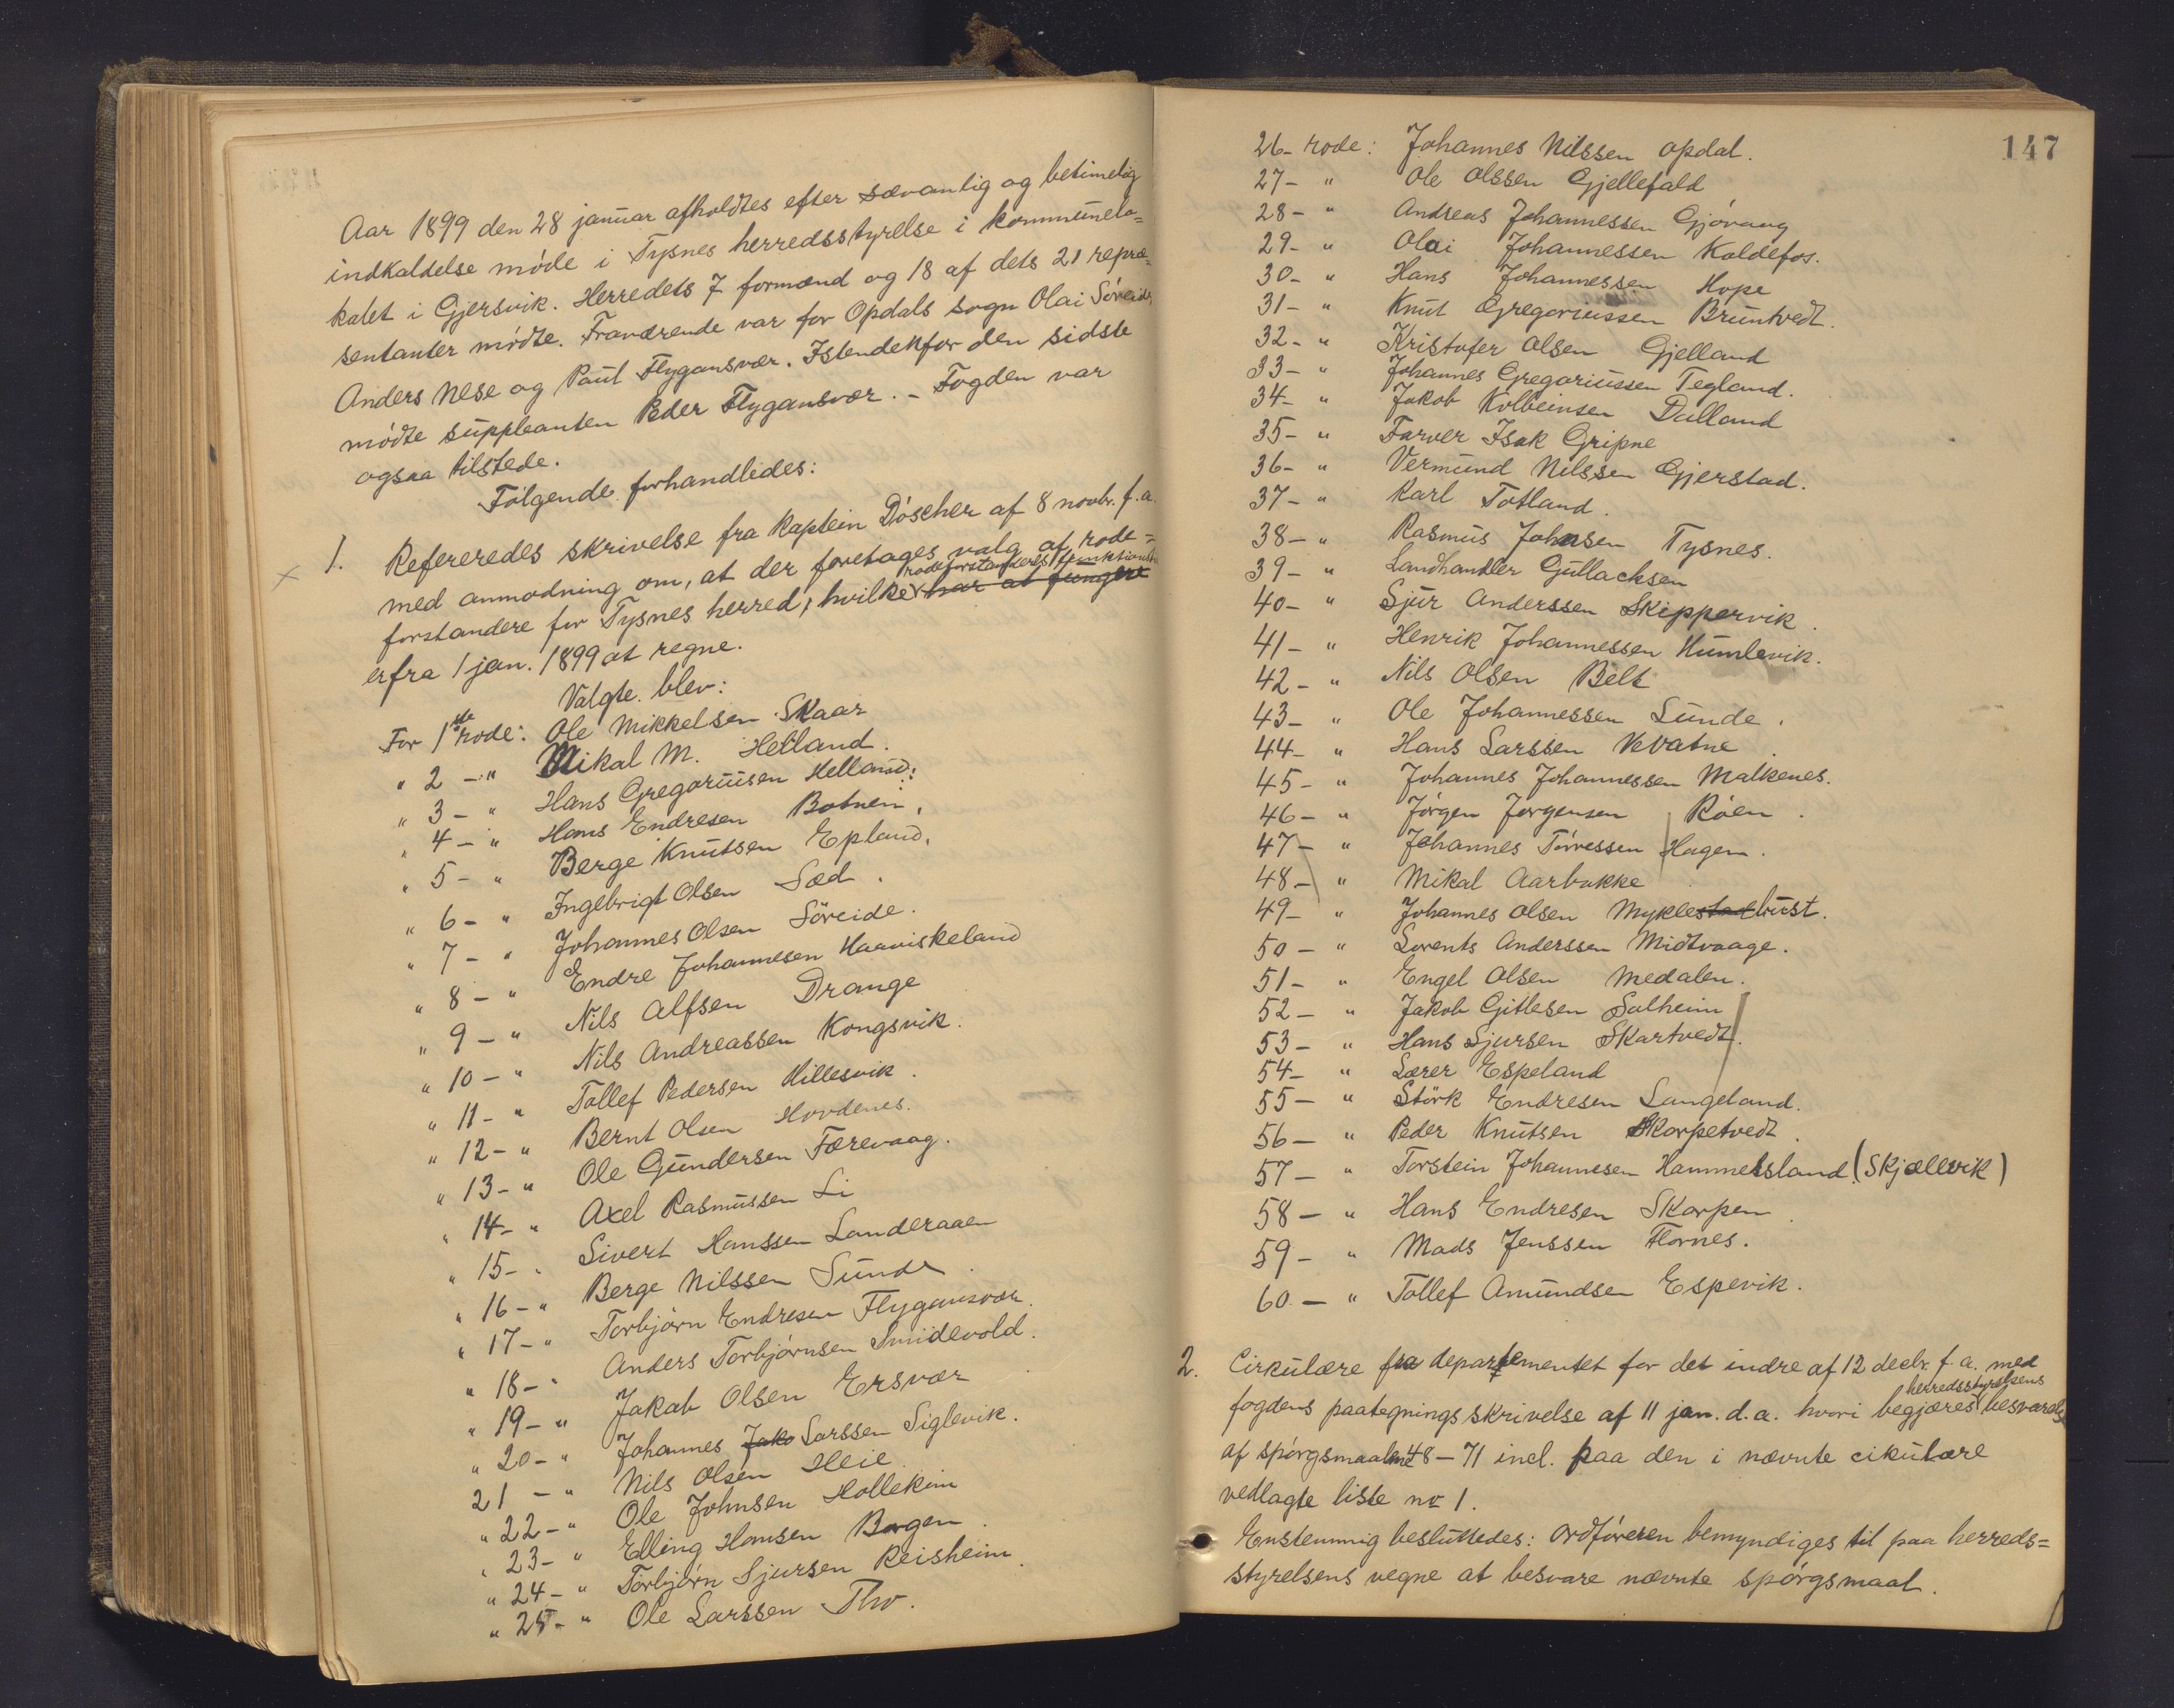 Aar 1899 den 28 januar afholdtes efter sævanlig og betimelig
indkaldelse møde i Tysnes herredsstyrelse i kommunelo=
kalet i Gjersvik. Herredets 7 formænd og 18 af dets 21 repræ=
sentanter mødte. Fraværende var for Opdals sogn Olai Søreide
Anders Nese og Paul Flygansvær. Istendenfor den sidste
mødte suppleanten Peder Flygansvær. – Fogden var
ogsaa tilstede.
Følgende forhandledes:
1. Refereredes skrivelse fra kaptein Döscher af 8 novbr. f.a.
med anmodning om, at der foretages valg af rode=
forstandere for Tysnes herred, hvilke rodeforstanderes funktionstid har at fungere
er fra 1 jan. 1899 at regne.
Valgte blev:
For 1ste rode: Ole Mikkelsen Skaar
" 2 – " Mikal M. Helland.
" 3 – " Hans Gregoriusen Helland.
" 4 – " Hans Endresen Botnen.
" 5 – " Berge Knutsen Epland.
" 6 – " Ingebrigt Olsen Sæd.
" 7 – " Johannes Olsen Søreide.
" 8 – " Endre Johannesen Haaviskeland
" 9 – " Nils Alfsen Drange
" 10 – " Nils Andreassen Kongsvik.
" 11 – " Tollef Pedersen Hillesvik.
" 12 – " Bernt Olsen Hovdenes.
" 13 – " Ole Gundersen Færevaag.
" 14 – " Axel Rasmussen Li
" 15 – " Sivert Hanssen Landeraaen
" 16 – " Berge Nilssen Sunde
" 17 – " Torbjørn Endresen Flygansvær.
" 18 – " Anders Torbjørnsen Smidevold.
" 19 – " Jakob Olsen Ersvær
" 20 – " Johannes Jako Larssen Siglevik.
21 – " Nils Olsen Heie
" 22 – " Ole Johnsen Hollekim
" 23 – " Elling Hansen Borgen
" 24 – " Torbjørn Sjursen Reisheim.
" 25 – " Ole Larssen Tho.
147
26 – rode: Johannes Nilssen Opdal.
27 – " Ole Olssen Gjellefald
28 – " Andreas Johannessen Gjøvaag
29 – " Olai Johannessen Koldefos.
30 – " Hans Johannessen Hope
31 – " Knut Gregoriussen Bruntvedt.
32 – " Kristofer Olsen Gjelland
33 – " Johannes Gregoriussen Tegland.
34 – " Jakob Kolbeinsen Dalland
35 – " Farver Isak Gripne
36 – " Vermund Nilssen Gjerstad.
37 – " Karl Totland.
38 – " Rasmus Johnsen Tysnes.
39 – " Landhandler Gullacksen
40 – " Sjur Anderssen Skippervik.
41 – " Henrik Johannessen Humlevik.
42 – " Nils Olsen Belt
43 – " Ole Johannessen Lunde.
44 – " Hans Larssen Vevatne.
45 – " Johannes Johannessen Malkenes.
46 – " Jørgen Jørgensen Røen.
47 – " Johannes Tørressen Hagen.
48 – " Mikal Aarbakke
49 – " Johannes Olsen Myklestadbust.
50 – " Lorents Anderssen Midtvaage.
51 – " Engel Olsen Medalen.
52 – " Jakob Gitlesen Solheim
53 – " Hans Sjursen Skartvedt.
54 – " Lærer Espeland
55 – " Störk Endresen Langeland.
56 – " Peder Knutsen Skorpetvedt.
57 – " Torstein Johannesen Hammelsland. (Skjællevik)
58 – " Hans Endresen Skorpen.
59 – " Mads Jenssen Flornes.
60 – " Tollef Amundsen Espevik.
2. Cirkulære fra departementet for det indre af 12 decbr. f.a. med
fogdens paategningsskrivelse af 11 jan. d.a. hvori begjæres herredsstyrelsens besvarelse
af spørgsmaalene 48 – 71 incl. paa den i nævnte cikulære
vedlagte liste no 1.
Enstemmig besluttedes: Ordføreren bemyndiges til paa herreds=
styrelsens vegne at besvare nævnte spørgsmaal.